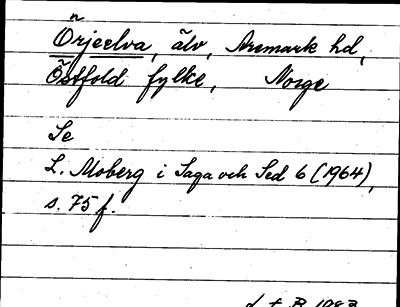 Örjeelva, älv, Aremark hd,
Östfold fylke, Norge
Se
L. Moberg i Saga och Sed 6 (1964),
s. 75 f.
1983